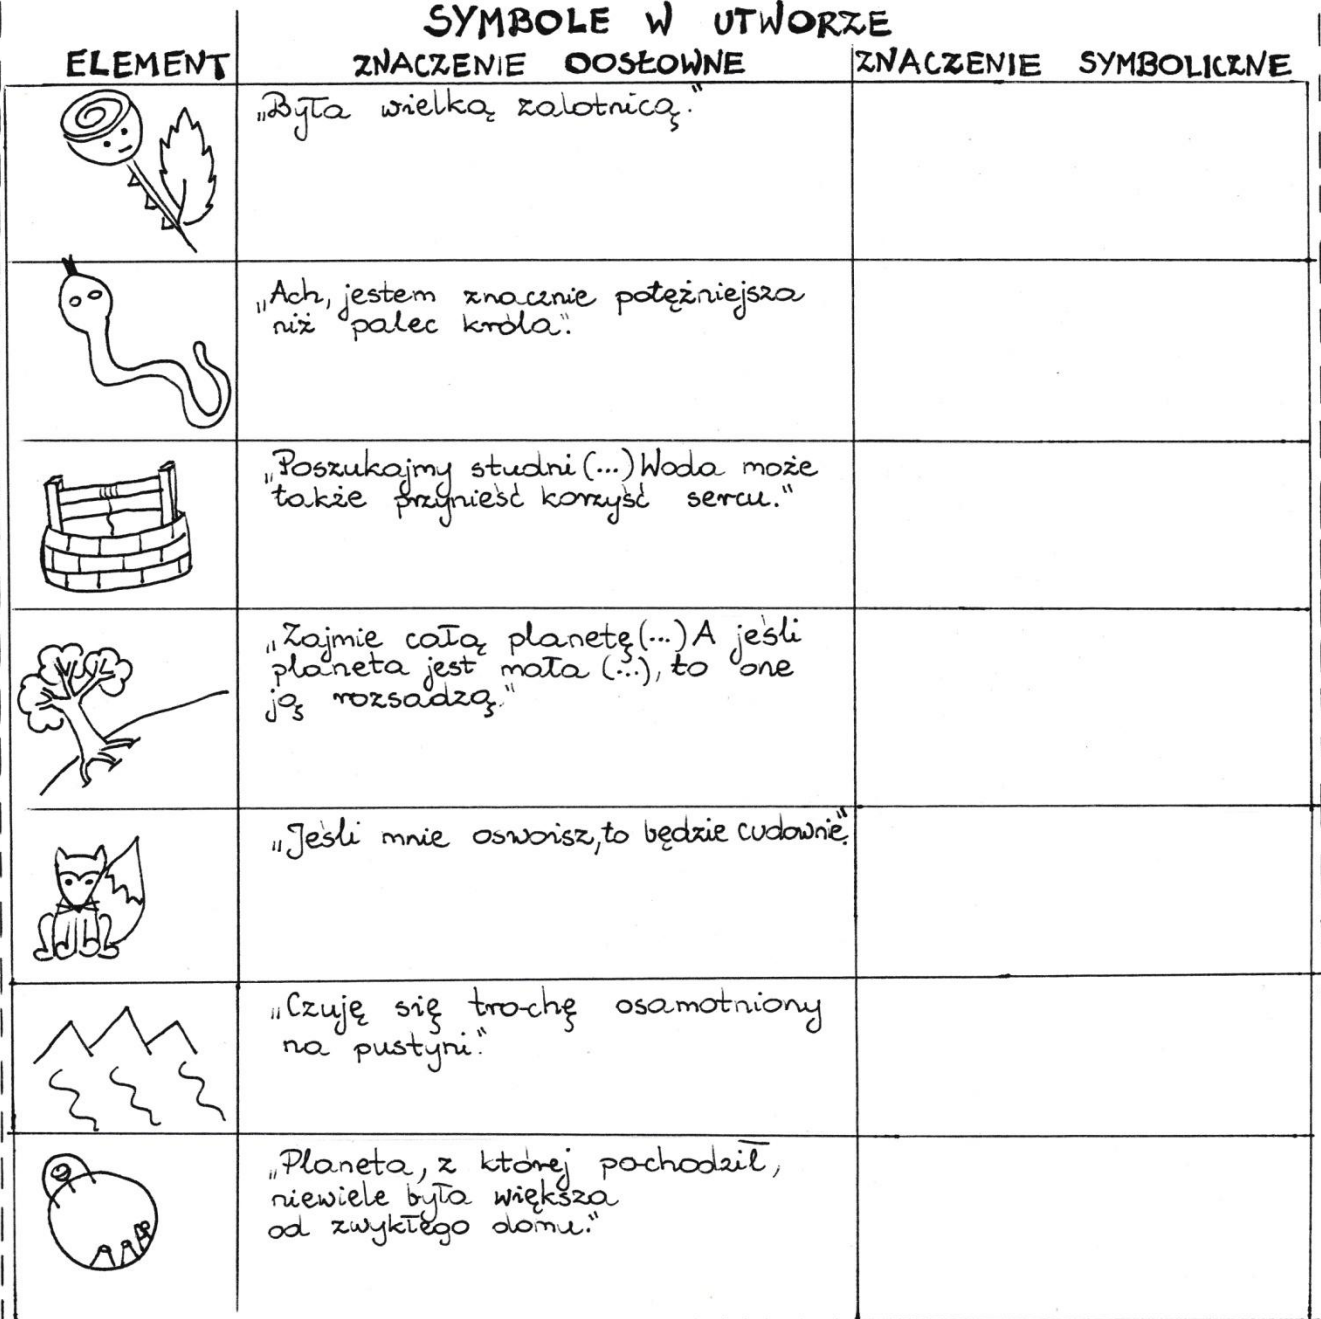 SYMBOLE W UTWORZE
ELEMENT ZNACZENIE DOSŁOWNE ZNACZENIE SYMBOLICZNE
„Była wielką zalotnicą."
„Ach, jestem znacznie potężniejsza
niż palec króla".
„Poszukajmy studni (...) Woda może
także przynieść korzyść sercu."
„Zajmie całą planetę (...) A jeśli
planeta jest mała (...), to one
ją rozsadzą."
„Jeśli mnie oswoisz, to będzie cudownie."
„Czuję się trochę osamotniony
na pustyni."
„Planeta, z której pochodził,
niewiele była większa
od zwykłego domu."